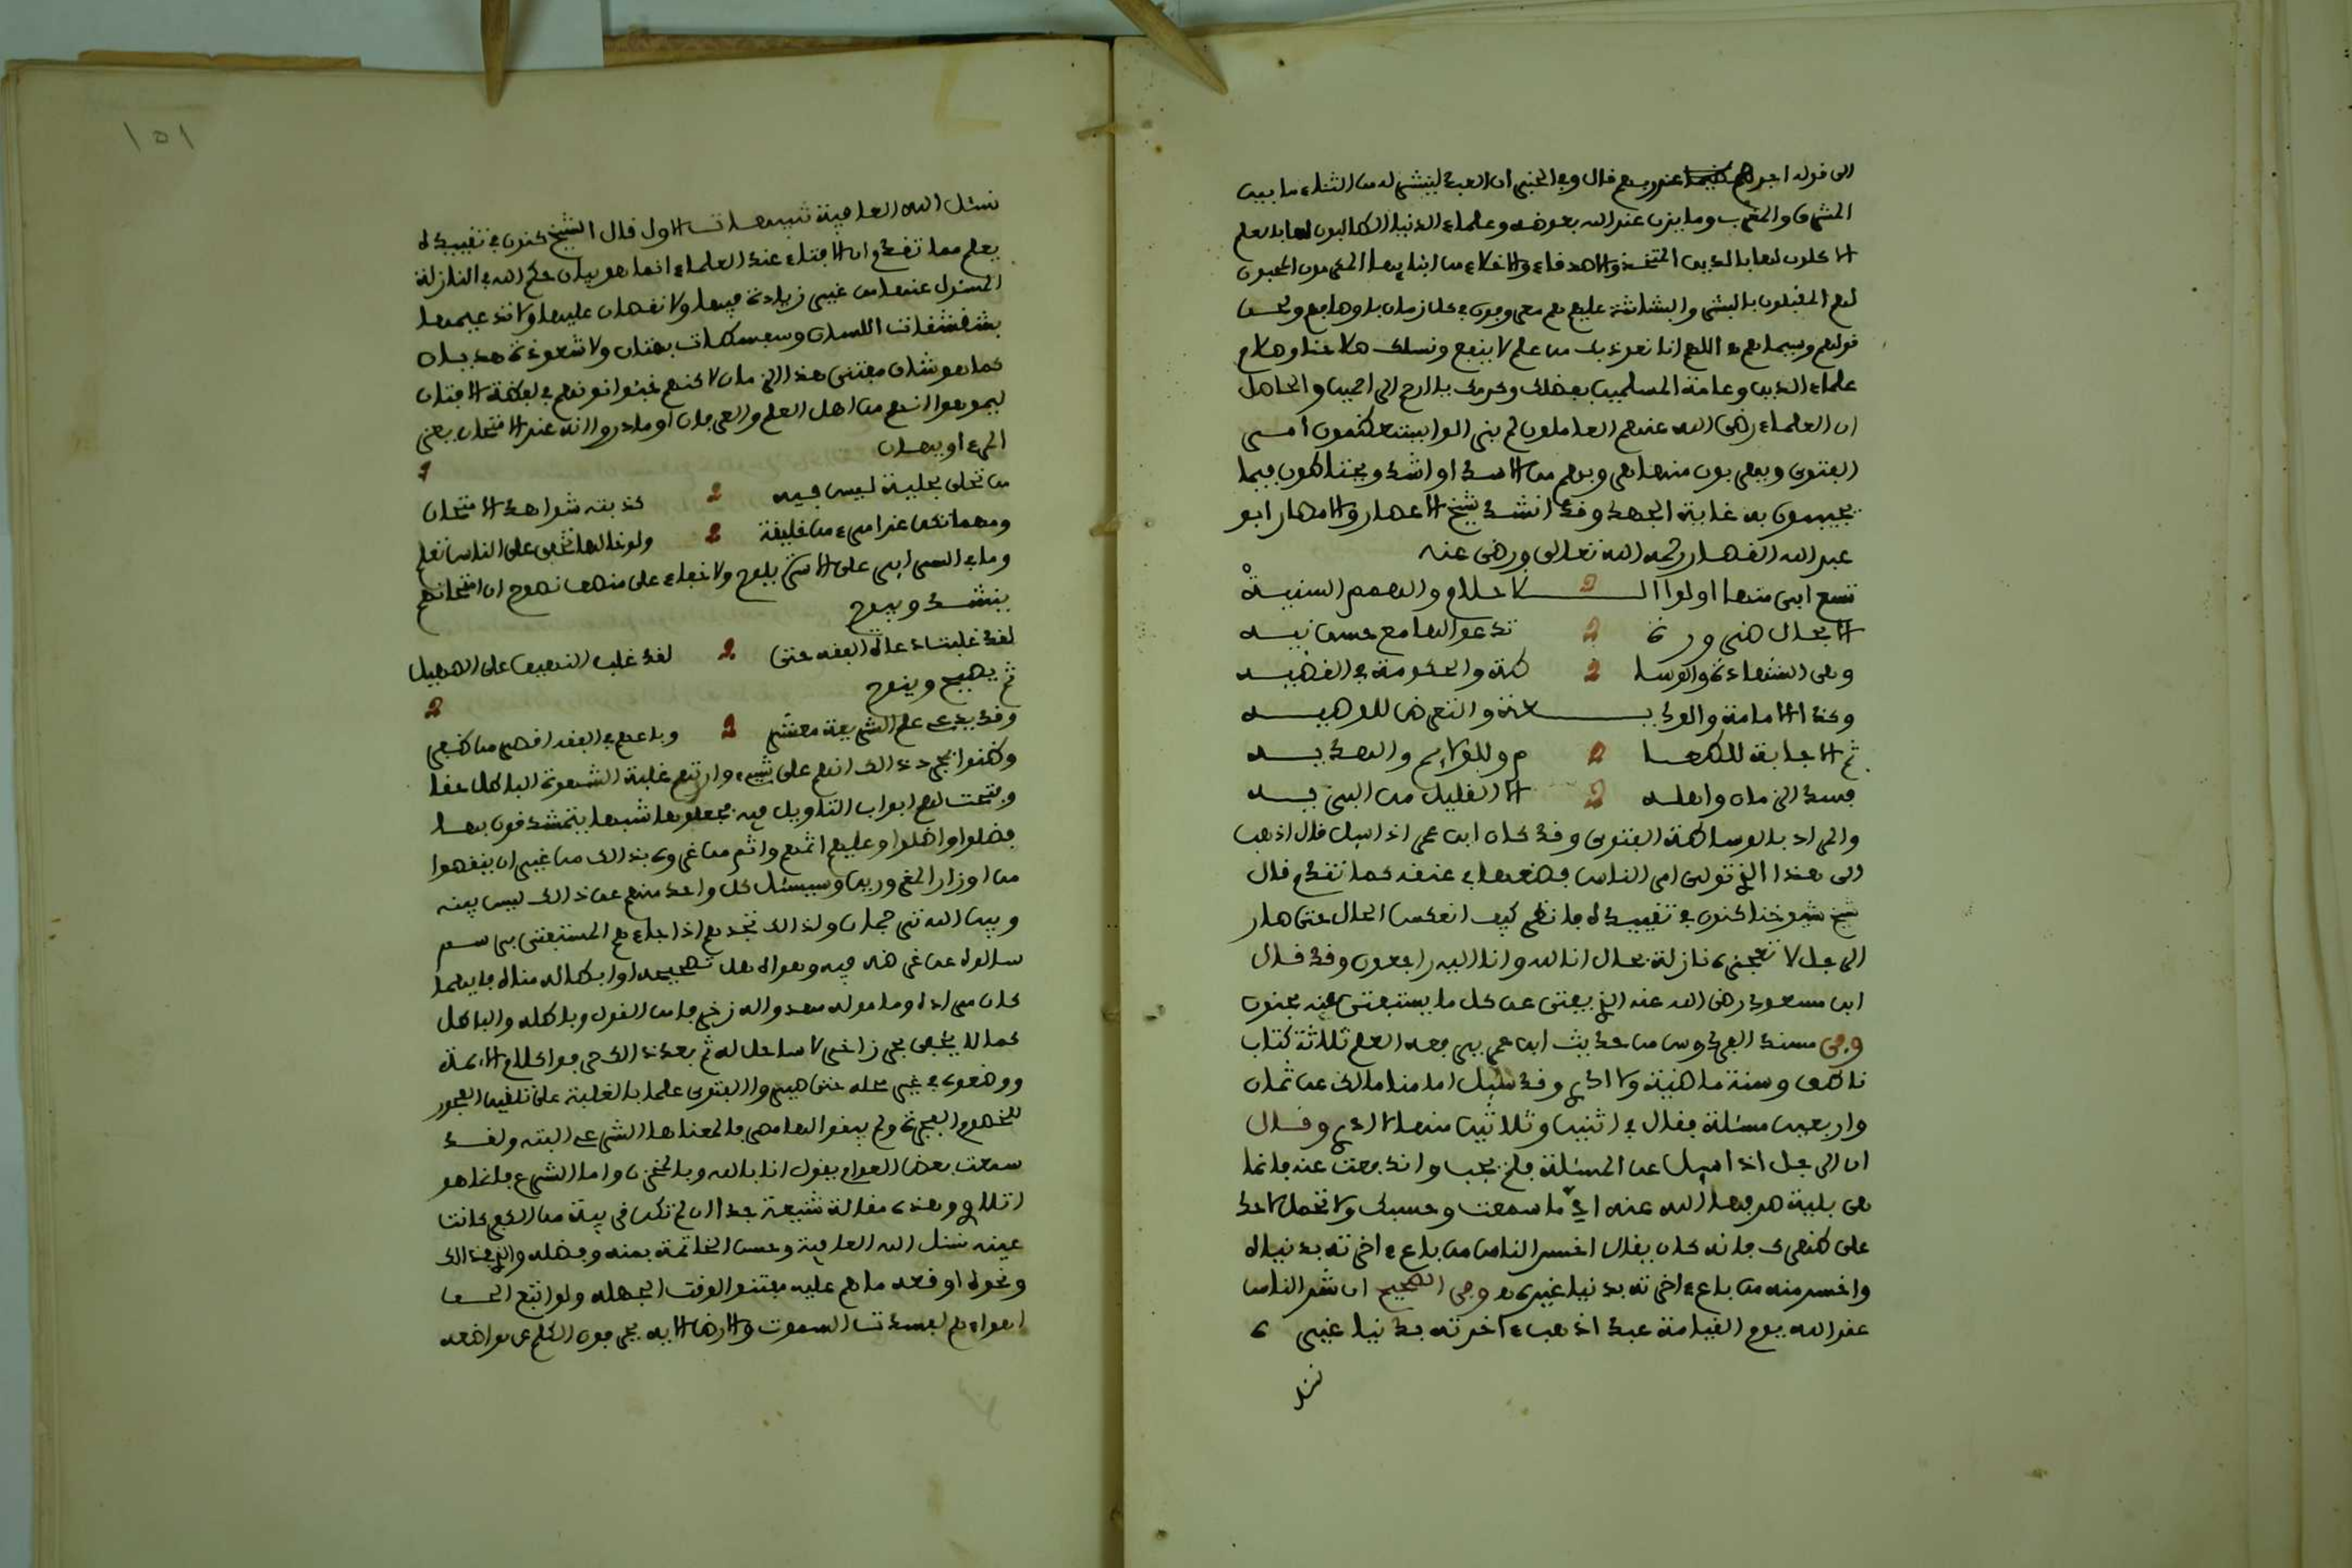 الى قوله اجرهم عند ربهم قال وفي الخبر ان العبد لينشر له من الثناء ما بين
المشرق والمغرب وما يزن عند الله بعوضة وعلماء الدنيا الطالبون لها بالعلم
الاكلون لها بالدين المتخذو الاصدقاء والاخلاء من ابنايها المكرمون المحبون
لهم المقبلون بالبشر والبشاشة عليهم هم معروفون في كل زمان باوصافهم ولحن
قولهم وسيماهم اللهم انا نعوذ بك من علم لا ينفع ونسلك صلاحنا وصلاح
علماء الدين وعامة المسلمين بفضلك وكرمك يا ارحم الراحمين والحاصل
ان العلماء رضي الله عنهم العاملون لم يزالوا يستعظمون امر
الفتوى ويفرون منها فرارهم من الاسد او اشد ويحتاطون فيما
يجيبون به غاية الجهد وقد انشد شيخ الاعصار والامصار ابو
عبد الله القصار رحمه الله تعالى ورضي عنه
تسع ابى منها اولوا الـ ـاحلام والهمم السنية
الا بحال ضرورة تدعوا لها مع حسن نية
وهي الشهادة والوسا طة والحكومة في القضية
وكذا الامامة والوديـ ـعة والتعرض للوصية
ثم الاجابة للطعا م وللولايم والهدية
فسد الزمان واهله الا القليل من البرية
والمراد بالوساطة الفتوى وقد كان ابن عمر اذا سيل قال اذهب
الى هذا الذي تولى امر الناس فضعها في عنقه كما تقدم قال
شيخ شيوخنا كنون في تقييد له فانظر كيف انعكس الحال حتى صار
الرجل لا تعجزه نازلة بحال انا لله وانا اليه راجعون وقد قال
ابن مسعود رضي الله عنه الذي يفتي عن كل ما يستفتى عنه مجنون
وفي مسند الفردوس من حديث ابن عمر يرفعه العلم ثلاثة كتاب
ناطق وسنة ماضية ولا ادري وقد سيل امامنا مالك عن ثمان
واربعين مسئلة فقال في اثنين وثلاثين منها لا ادري وقال
ان الرجل اذا سيل عن المسئلة فلم يجب واندفعت عنه فانما
هي بلية صرفها الله عنه اي ما سمعت وحسبك ولا تحمل لاحد
على ظهرك فانه كان يقال اخسر الناس من باع اخرته بدنياه
واخسر منه من باع اخرته بدنيا غيره وفي الصحيح ان شر الناس
عند الله يوم القيامة عبد اذهب اخرته بدنيا غيره
نسئل
١٥١
نسئل الله العافية تنبيهات الاول قال الشيخ كنون في تقييد له
يعلم مما تقدم ان الافتاء عند العلماء انما هو بيان حكم الله في النازلة
المسئول عنها من غير زيادة فيها ولا نقصان عليها ولا تدعيمها
بشقشقات اللسان وسفسطات بهتان ولا شعوذة هذيان
كما هو شان مفتي هذا الزمان لاكنهم
ليموهوا انهم من اهل العلم والعرفان او ما دروا انه عند الامتحان يعز
المرء او يهان
من تحلى بحلية ليس فيه كذبته شواهد الامتحان
ومهما تكن عند امرء من خليقة ولو خالها تخفى على الناس تعلم
وما في السرايى على الاسرة يلوح ولا خفاء على منصف نصوح ان امتحانهم
ينشد ويبوح
لقد غلبت دعاة الفقه حتى لقد غلب النهيق على الصهيل
ثم يصيح وينوح
وقد يدعى علم الشريعة معشر وباعهم في الفقه اقصر من ظفر
وظنوا بمجرد ذلك انهم على شيء وارتهم غلبة الشهوة الباطل حقا
وفتحت لهم ابواب التاويل فيه فجعلوها شبها يتمشدقون بها
فضلوا واضلوا وعليهم اثمهم واثم من غروه بذلك من غير ان ينقصوا
من اوزار المغرورين وسيسئل كل واحد منهم عن ذلك ليس بينه
وبين الله ترجمان ولذلك تجدهم اذا جاءهم المستفتي برسم
سالوه عن غرضه فيه وهواه هل تصحيحه او ابطاله مناه فايهما
كان مراده وماموله مهدوا له زخرفا من القول وباطله والباطل
كماء يجري بحر زاخر لا ساحل له ثم بعد ذلك حرفوا كلام الائمة
ووضعوه في غير محله حتى صيروا الفتوى علما بالغلبة على تلقين الفجور
للخصوم الفجرة ولم يبقوا لها مصرفا لمعناها الشرعي البتة ولقد
سمعت بعض العوام يقول انا بالله وبالمخزن واما الشرع فانما هو
اتلاف وهذه مقالة شنيعة جدا ان لم تكن في ردة من الدين كانت
عينه نسئل الله العافية وحسن الخاتمة بمنه وفضله والى ذلك
ونحوه اوقعه ما هم عليه مفتنوا الوقت الجهلة ولو اتبع الحق
اهواءهم لفسدت السموت والارض الاية يحرفون الكلم عن مواضعه